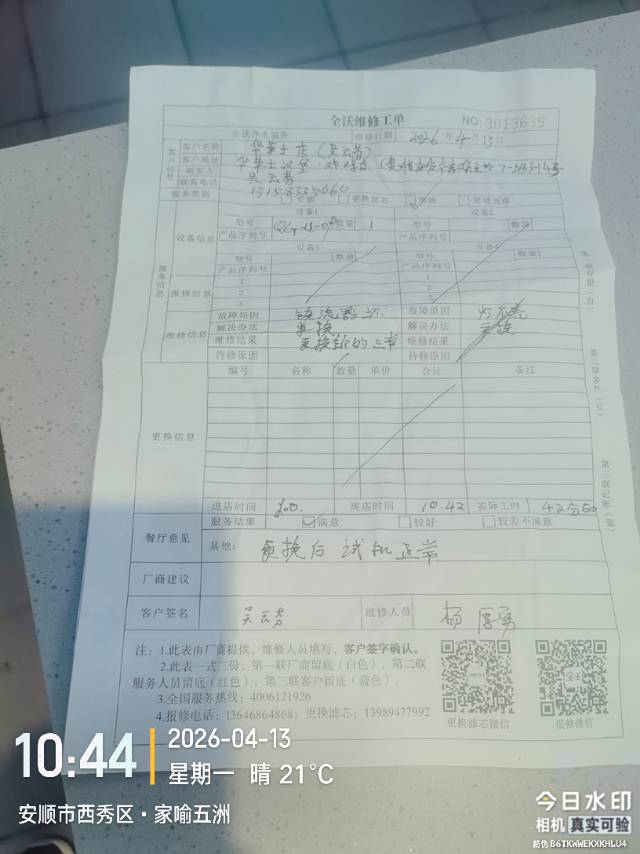 全沃维修工单
NO: 3013639
全沃净水服务 维修日期 2026 年 4 月 13 日
客户信息
客户名称 华莱士店
客户地址 华莱士汉堡·炸鸡
联系人
联系电话 13158335060
服务类别 安装 更换滤芯 维修 管道改造
服务信息
设备信息
设备1 设备2
型号 数量 1 型号 数量
产品序列号 产品序列号
设备3 设备4
型号 数量 型号 数量
产品序列号 产品序列号
报修信息
1 1
2 2
3 3
维修信息
故障原因 镇流器坏 故障原因 灯不亮
解决办法 更换 解决办法 更换
维修结果 更换新的正常 维修结果
待修原因 待修原因
更换信息
编号 名称 数量 单价 合计 备注
进店时间 离店时间 10.42 实际工时 42分
餐厅意见
服务结果 满意 较好 较差不满意
其他: 更换后试机正常
厂商建议
客户签名 维修人员 杨
第二联客户(红)
第三联记账(蓝)
注:1.此表由厂商提供,维修人员填写,客户签字确认。
2.此表一式三份,第一联厂商留底(白色),第二联
服务人员留底(红色),第三联客户留底(蓝色)。
3.全国服务热线:4006121926
4.报修电话:13646864868;更换滤芯:13989477992
更换滤芯微信
报修微信
10:44
2026-04-13
星期一 晴 21℃
安顺市西秀区·家喻五洲
今日水印
相机 真实可验
防伪 B6TKWWEKXKHLU4